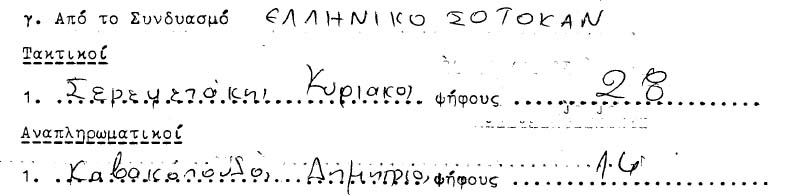 γ. Από το Συνδυασμό ΕΛΛΗΝΙΚΟ ΣΟΤΟΚΑΝ
Τακτικοί
1. Σερεμετάκη Κυριάκο, ψήφους 28
Αναπληρωματικοί
1. Καβακόπουλο, Δημήτριο, ψήφους 14